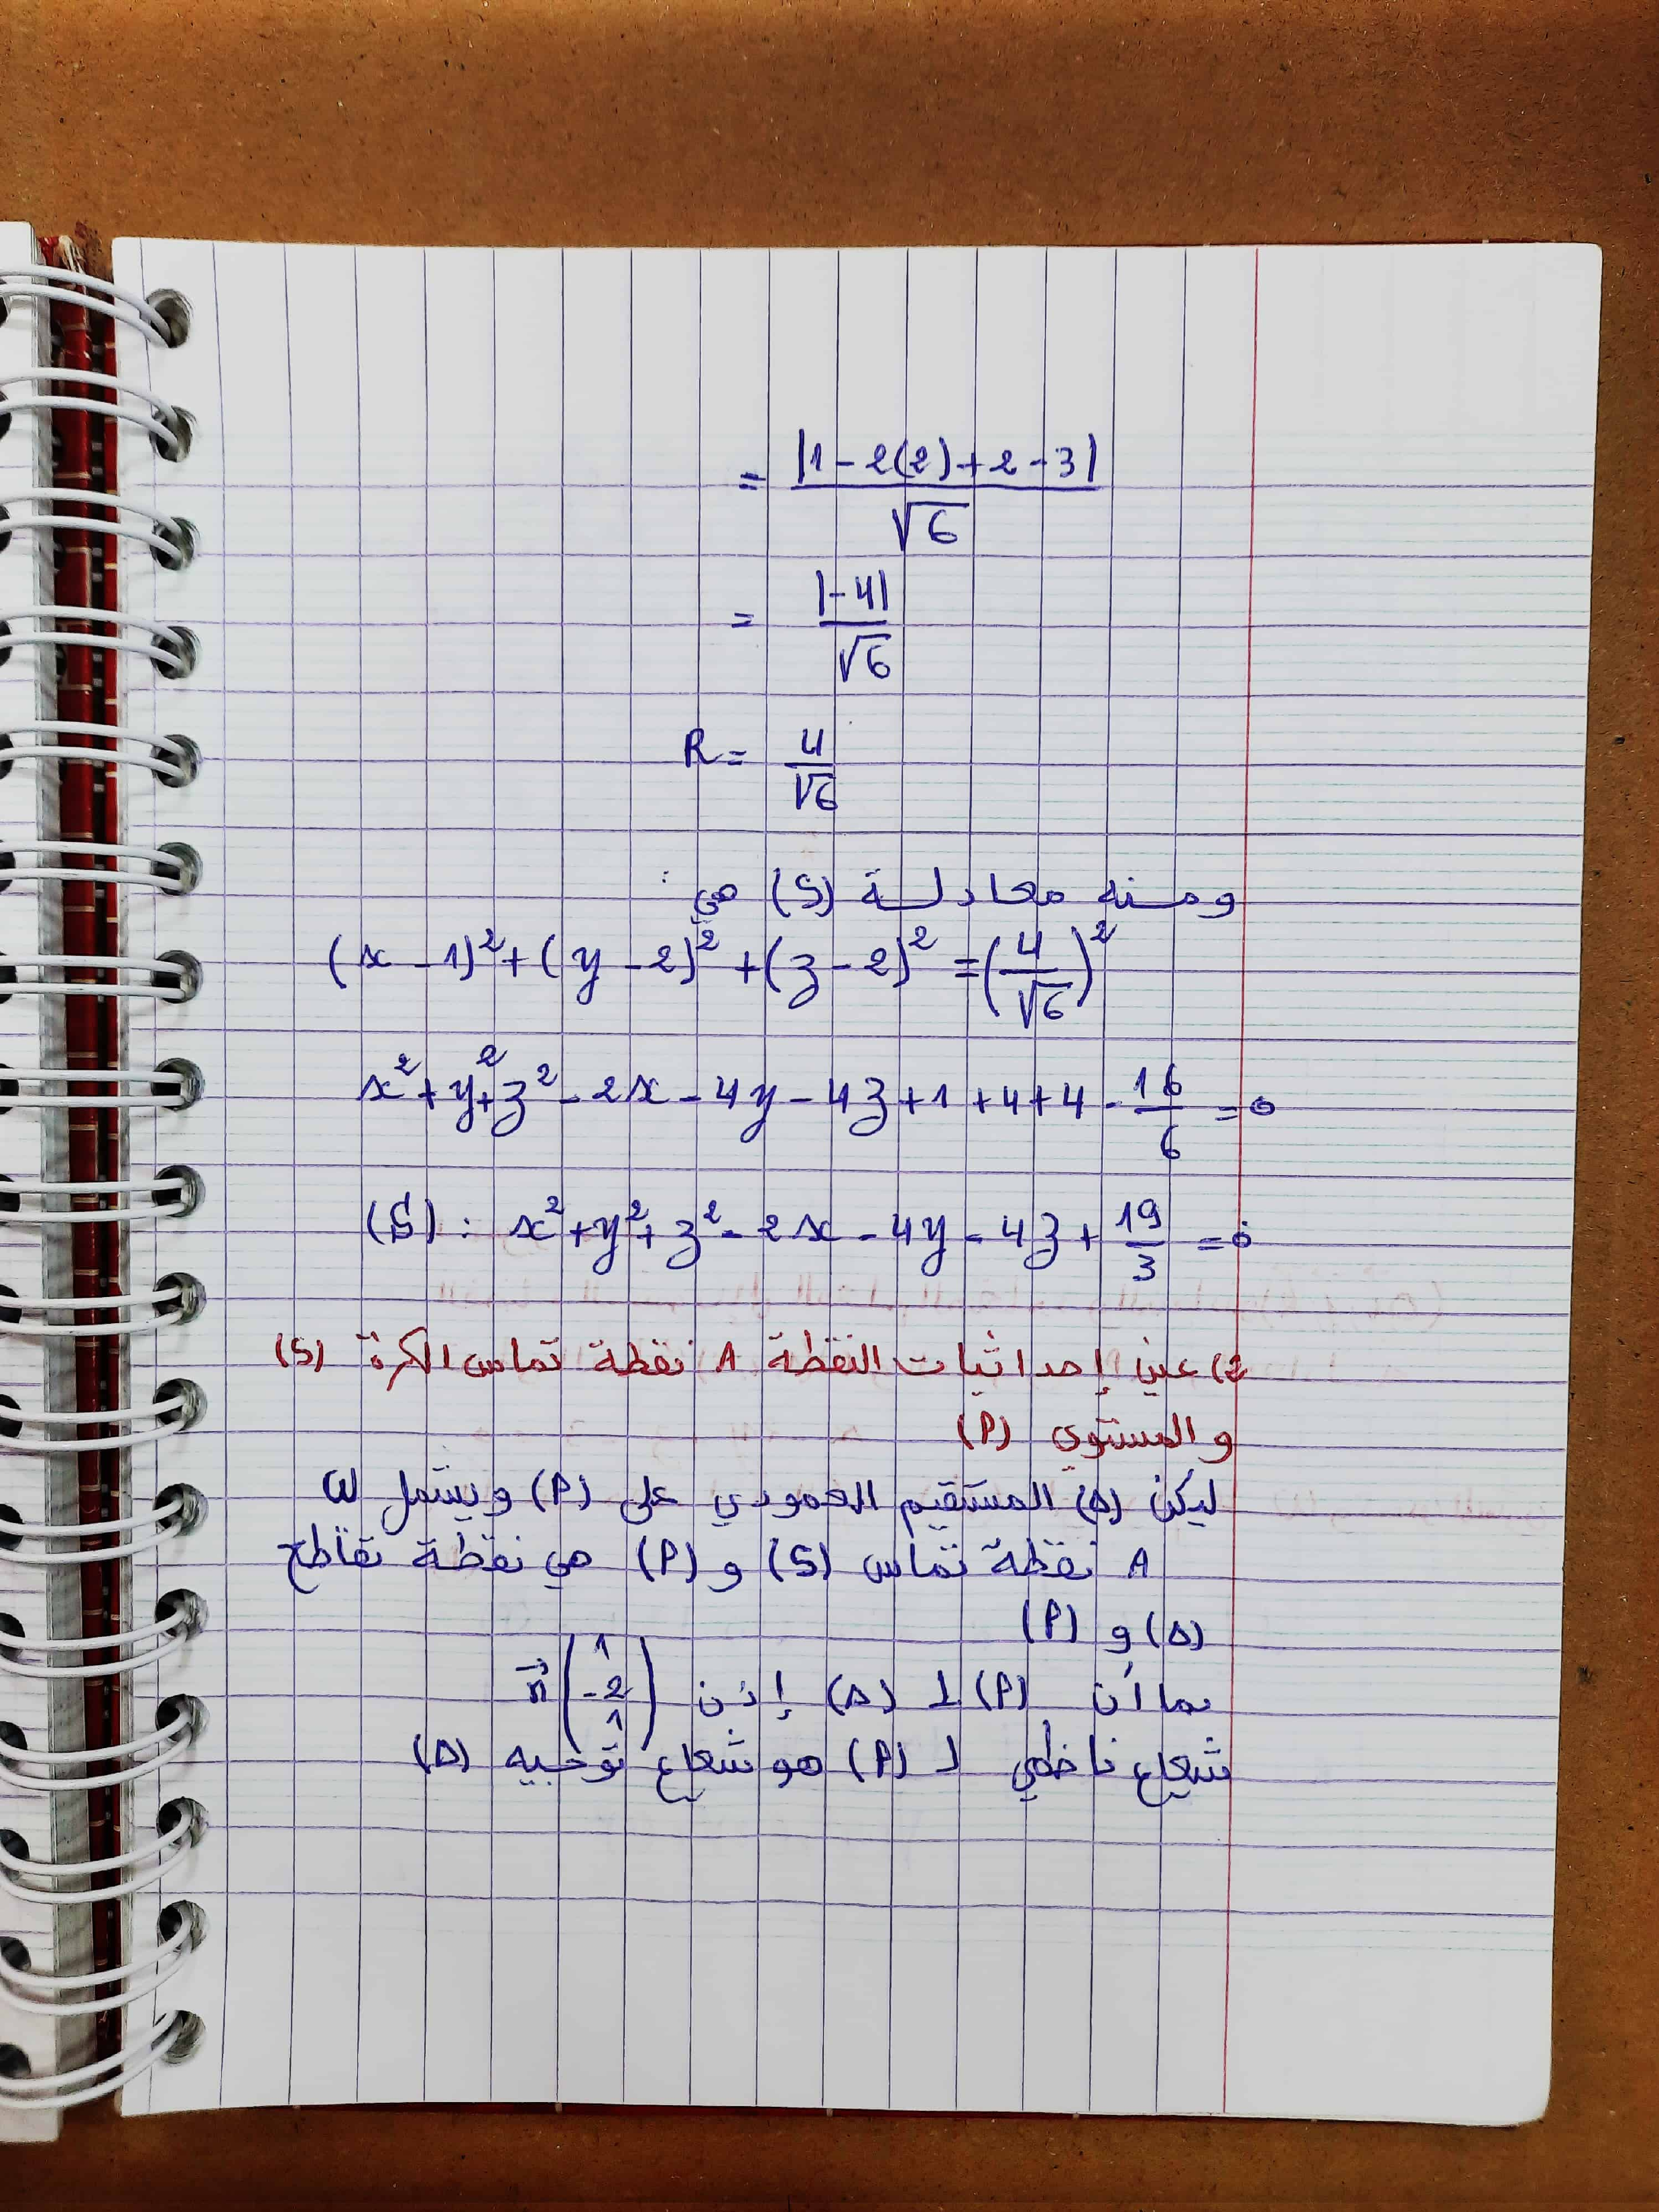 = |1 - 2(2) + 2 - 3| / √6
= |-4| / √6
R = 4 / √6
ومنه معادلة (S) هي :
(x - 1)² + (y - 2)² + (z - 2)² = (4/√6)²
x² + y² + z² - 2x - 4y - 4z + 1 + 4 + 4 - 16/6 = 0
(S) : x² + y² + z² - 2x - 4y - 4z + 19/3 = 0
2) عين إحداثيات النقطة A نقطة تماس الكرة (S)
و المستوي (P)
ليكن (Δ) المستقيم العمودي على (P) ويشمل ω
A نقطة تماس (S) و (P) هي نقطة تقاطع
(Δ) و (P)
بما أن (P) ⊥ (Δ) إذن n⃗ (1 -2 1)
شعاع ناظمي لـ (P) هو شعاع توجيه (Δ)